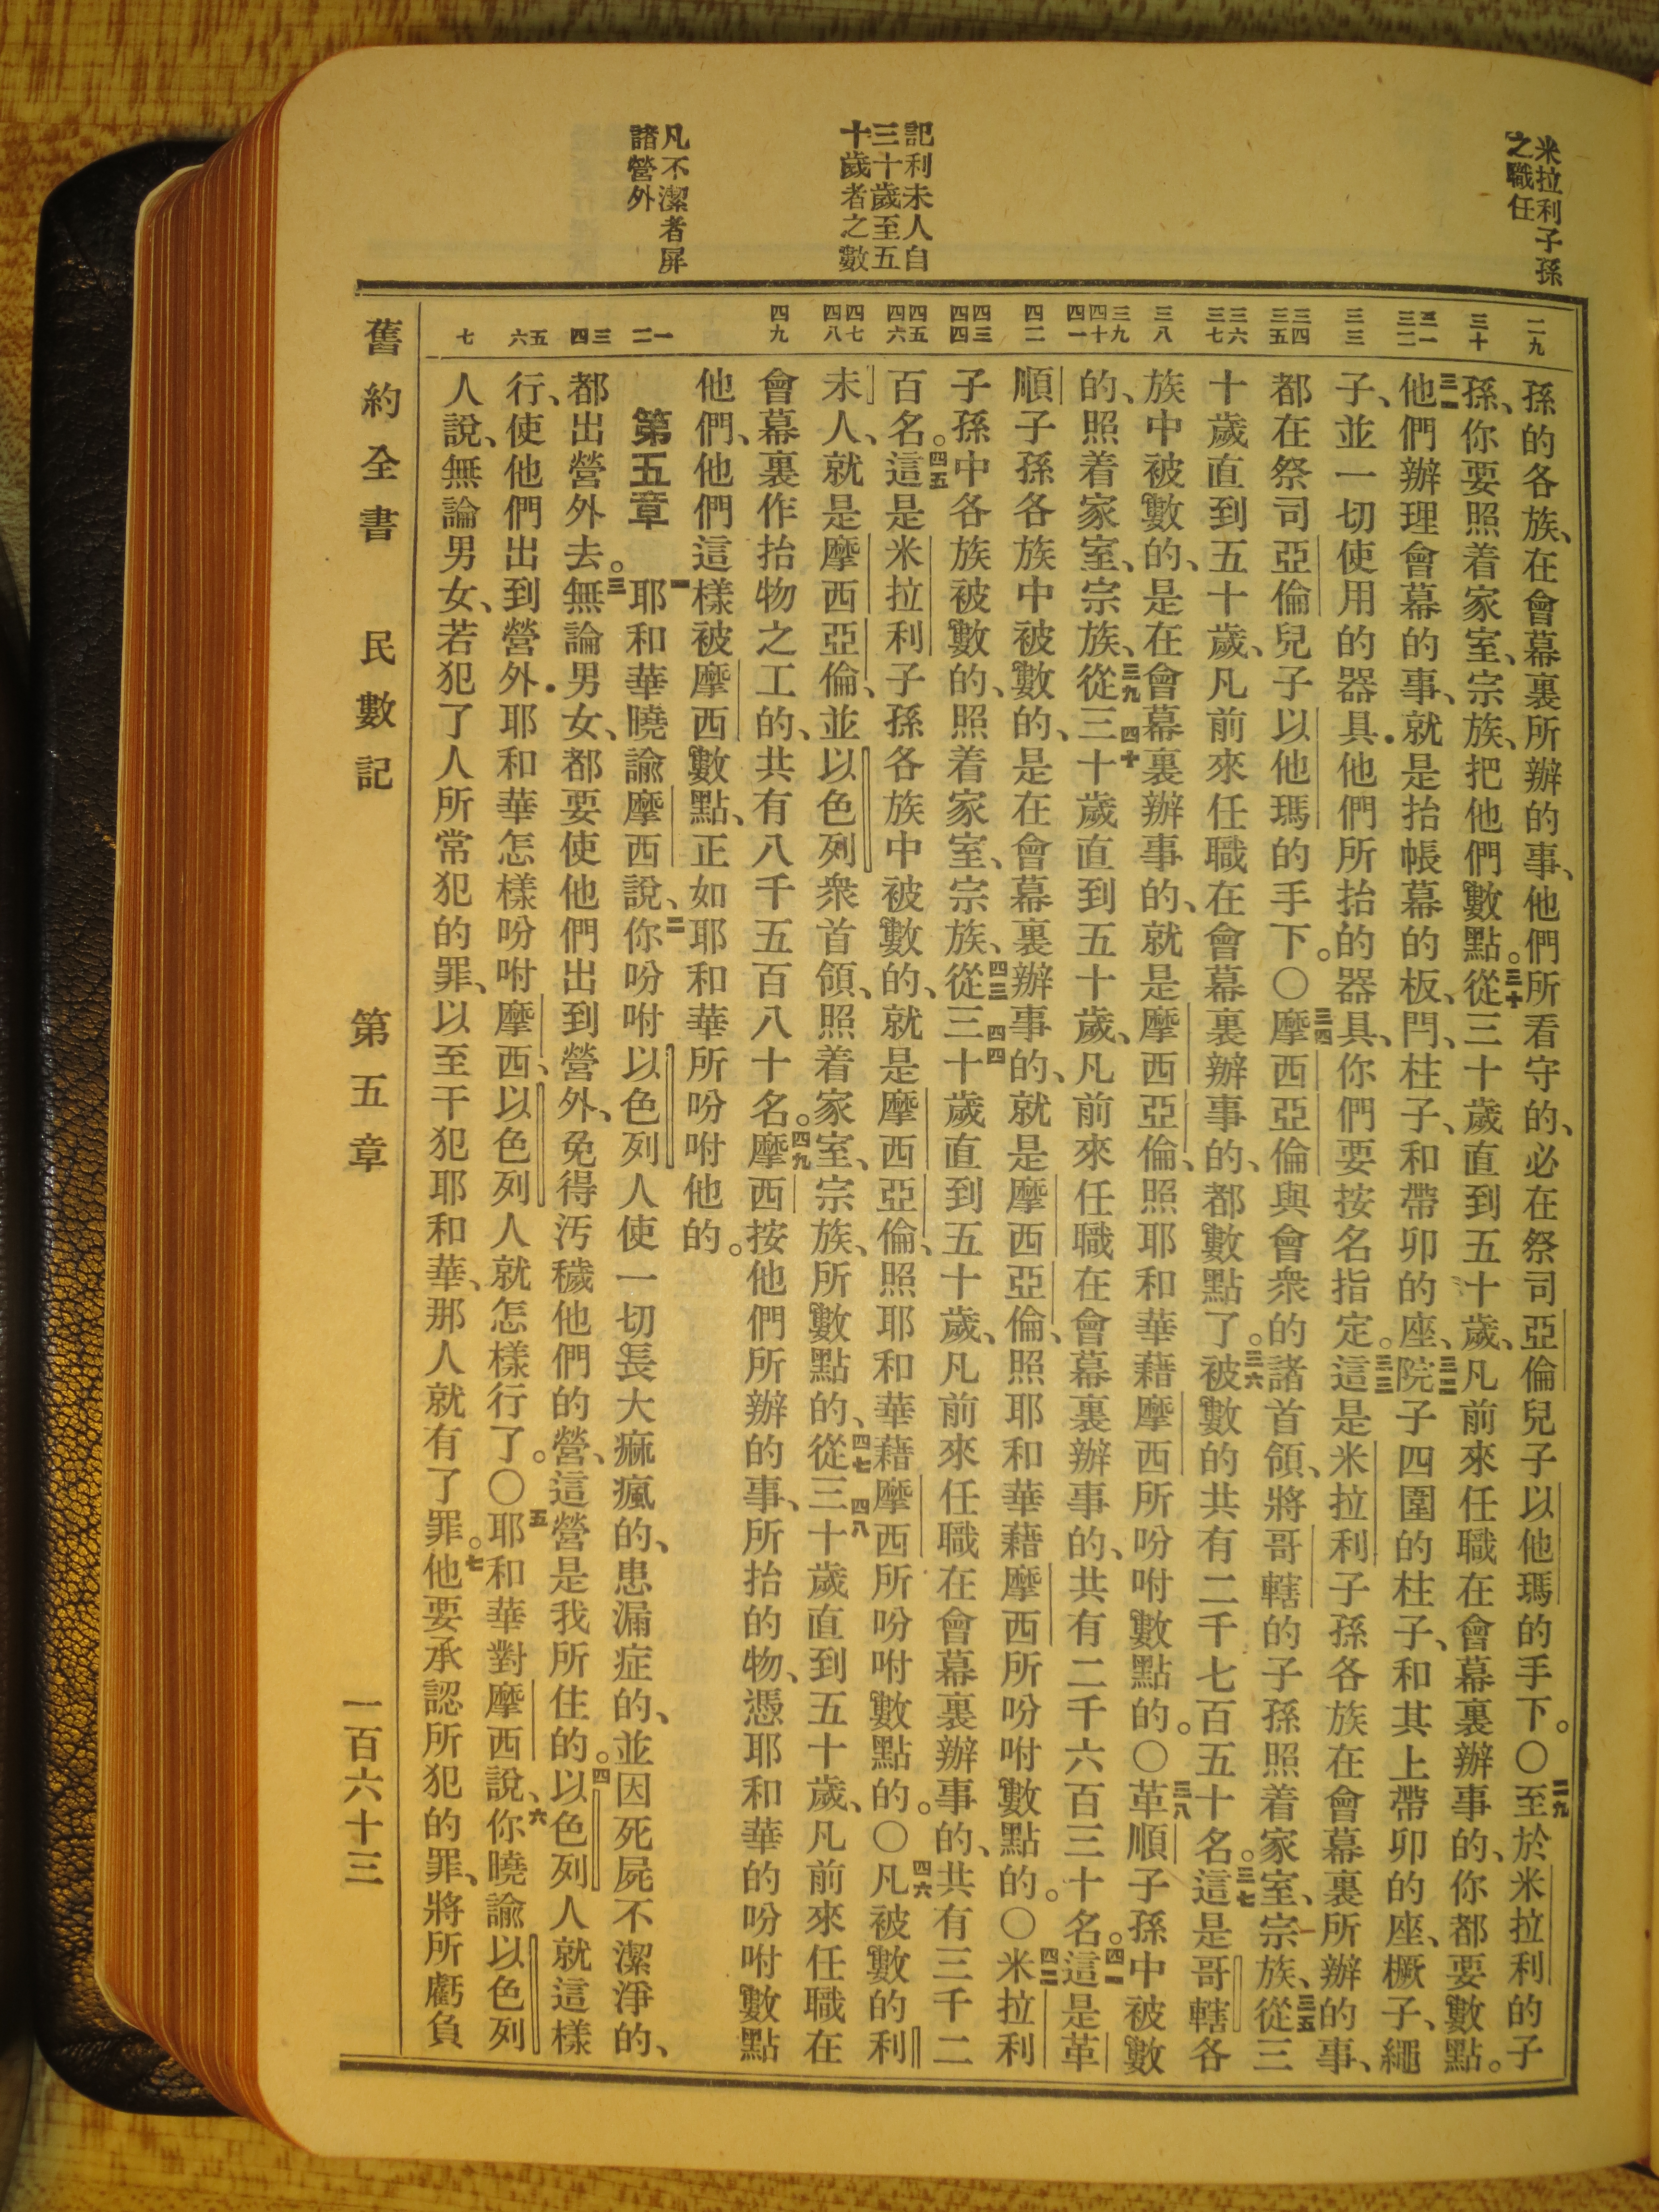 米拉利子孫
之職任
記利未人自
三十歲至五
十歲者之數
凡不潔者屏
諸營外
二九
三十
三一
三二
三三
三四
三五
三六
三七
三八
三九
四十
四一
四二
四三
四四
四五
四六
四七
四八
四九
一
二
三
四
五
六
七
孫的各族、在會幕裏所辦的事、他們所看守的、必在祭司亞倫兒子以他瑪的手下。〇二九至於米拉利的子
孫、你要照着家室、宗族、把他們數點。三十從三十歲直到五十歲、凡前來任職在會幕裏辦事的、你都要數點。
三一他們辦理會幕的事、就是抬帳幕的板、閂、柱子、和帶卯的座、三二院子四圍的柱子、和其上帶卯的座、橛子、繩
子、並一切使用的器具．他們所抬的器具、你們要按名指定。三三這是米拉利子孫各族在會幕裏所辦的事、
都在祭司亞倫兒子以他瑪的手下。〇三四摩西亞倫與會衆的諸首領、將哥轄的子孫照着家室、宗族、三五從三
十歲直到五十歲、凡前來任職在會幕裏辦事的、都數點了。三六被數的共有二千七百五十名。三七這是哥轄各
族中被數的、是在會幕裏辦事的、就是摩西亞倫、照耶和華藉摩西所吩咐數點的。〇三八革順子孫中被數
的、照着家室、宗族、三九從四十三十歲直到五十歲、凡前來任職在會幕裏辦事的、共有二千六百三十名。四一這是革
順子孫各族中被數的、是在會幕裏辦事的、就是摩西亞倫、照耶和華藉摩西所吩咐數點的。〇四二米拉利
子孫中各族被數的、照着家室、宗族、四三從四四三十歲直到五十歲、凡前來任職在會幕裏辦事的、共有三千二
百名。四五這是米拉利子孫各族中被數的、就是摩西亞倫、照耶和華藉摩西所吩咐數點的。〇四六凡被數的利
未人、就是摩西亞倫、並以色列衆首領、照着家室、宗族、所數點的、四七從四八三十歲直到五十歲、凡前來任職在
會幕裏作抬物之工的、共有八千五百八十名。四九摩西按他們所辦的事、所抬的物、憑耶和華的吩咐數點
他們、他們這樣被摩西數點、正如耶和華所吩咐他的。
第五章 一耶和華曉諭摩西說、二你吩咐以色列人使一切長大痲瘋的、患漏症的、並因死屍不潔淨的、
都出營外去。三無論男女、都要使他們出到營外、免得汚穢他們的營、這營是我所住的。四以色列人就這樣
行、使他們出到營外．耶和華怎樣吩咐摩西、以色列人就怎樣行了。〇五耶和華對摩西說、六你曉諭以色列
人說、無論男女、若犯了人所常犯的罪、以至干犯耶和華、那人就有了罪。七他要承認所犯的罪、將所虧負
舊約全書 民數記 第五章 一百六十三